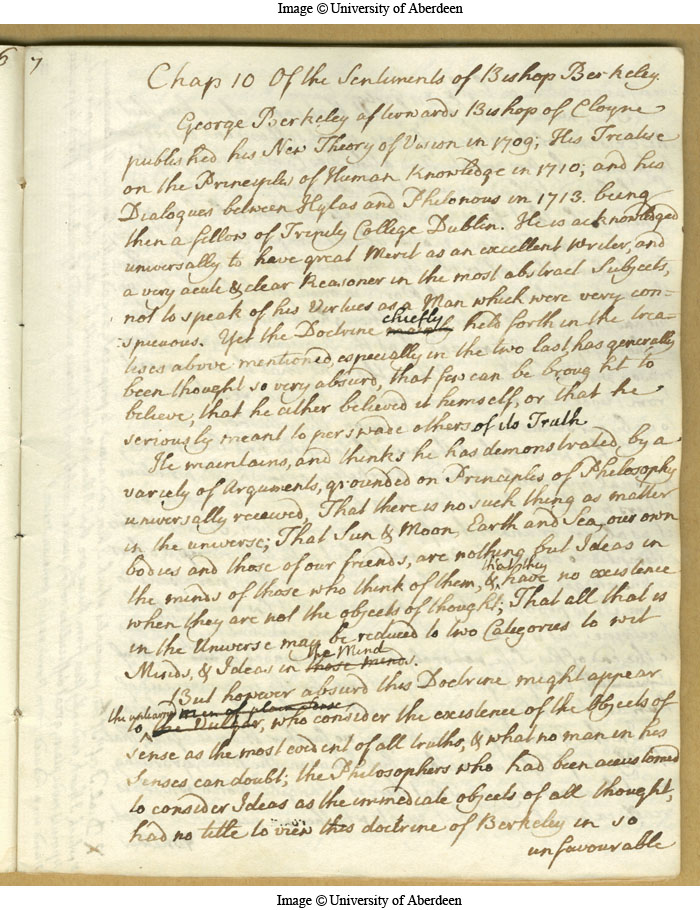 Image © University of Aberdeen
6 7
Chap 10 Of the Sentiments of Bishop Berkeley.
George Berkeley afterwards Bishop of Cloyne
published his New Theory of Vision in 1709; His Treatise
on the Principles of Human Knowledge in 1710; and his
Dialogues between Hylas and Philonous in 1713. being
then a fellow of Trinity College Dublin. He is acknowledged
universally to have great Merit as an excellent writer, and
a very acute & clear Reasoner in the most abstract Subjects,
not to speak of his Virtues as a Man which were very con-
chiefly
spicuous. Yet the Doctrine held forth in the trea-
tises above mentioned, especially in the two last, has generally
been thought so very absurd, that few can be brought to
believe, that he either believed it himself, or that he
seriously meant to perswade others of its Truth
He maintains, and thinks he has demonstrated, by a
variety of Arguments, grounded on Principles of Philosophy
universally received, That there is no such thing as matter
in the universe; That Sun & Moon, Earth and Sea, our own
bodies and those of our friends, are nothing but Ideas in
that they
the minds of those who think of them, & have no existence
when they are not the objects of thought; That all that is
in the Universe may be reduced to two Categories to wit
the Mind
Minds, & Ideas in those minds.
But however absurd this Doctrine might appear
the unlearned men of plain sense
to the Vulgar, who consider the existence of the Objects of
sense as the most evident of all truths, & what no man in his
Senses can doubt; the Philosophers who had been accustomed
to consider Ideas as the immediate objects of all thought,
had no title to view this doctrine of Berkeley in so
unfavourable
x
Image © University of Aberdeen